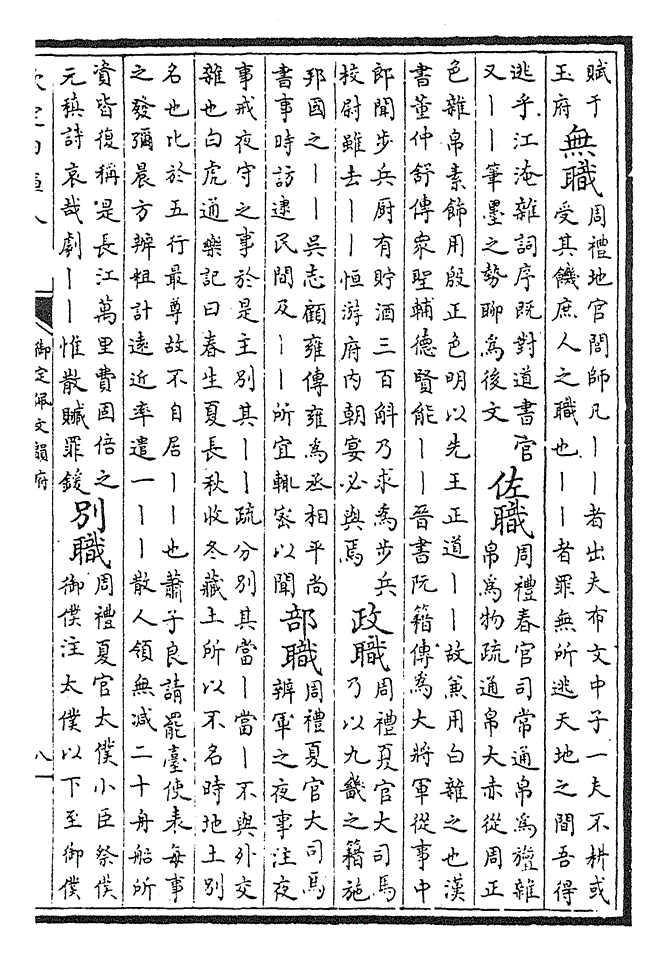 賦于
玉府
無職
周禮地官閭師凡丨丨者出夫布文中子一夫不耕或
受其饑庶人之職也丨丨者罪無所逃天地之間吾得
逃乎江淹雜詞序既對道書官
又丨丨筆墨之勢聊為後文
佐職
周禮春官司常通帛為旜雜
帛為物疏通帛大赤從周正
色雜帛素飾用殷正色明以先王正道丨丨故兼用白雜之也漢
書董仲舒傳衆聖輔德賢能丨丨晉書阮籍傳為大將軍從事中
郎聞步兵厨有貯酒三百斛乃求為步兵
校尉雖去丨丨恒游府内朝宴必與焉
政職
周禮夏官大司馬
乃以九畿之籍施
邦國之丨丨吳志顧雍傳雍為丞相平尚
書事時訪逮民間及丨丨所宜輒密以聞
部職
周禮夏官大司馬
辨軍之夜事注夜
事戒夜守之事於是主別其丨丨疏分別其當丨當丨不與外交
雜也白虎通樂記曰春生夏長秋收冬藏土所以不名時地土別
名也比於五行最尊故不自居丨丨也蕭子良請罷臺使表每事
之發彌晨方辦粗計遠近率遣一丨丨丨散人領無减二十舟船所
資皆復稱是長江萬里費固倍之
元稹詩哀哉劇丨丨惟散贓罪鍰
別職
周禮夏官太僕小臣祭僕
御僕注太僕以下至御僕
御定佩文韻府